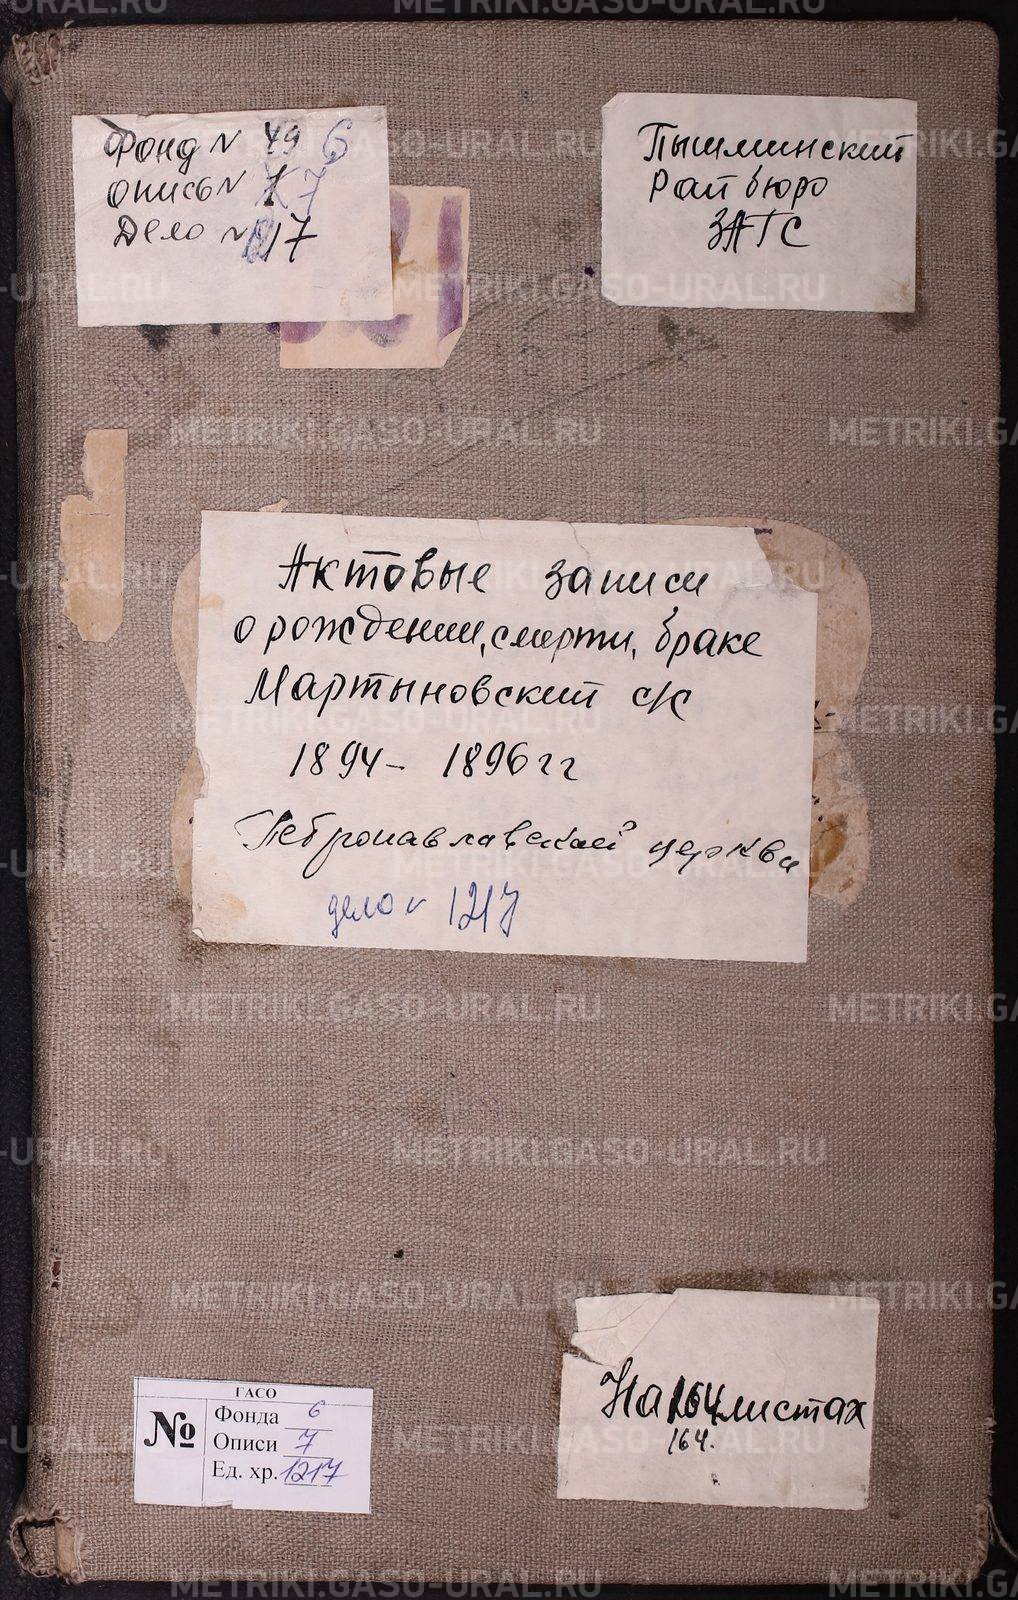 Фонд N 49 6
опись N 1 7
Дело N 1217
Пышминский
Рай бюро
ЗАГС
Актовые записи
о рождении, смерти, браке
Мартыновский с/с
1894- 1896 гг
Петропавлавской церкви
дело N 1217
ГАСО
№
Фонда 6
Описи 7
Ед. хр. 1217
На 164 листах
164.
METRIKI.GASO-URAL.RU